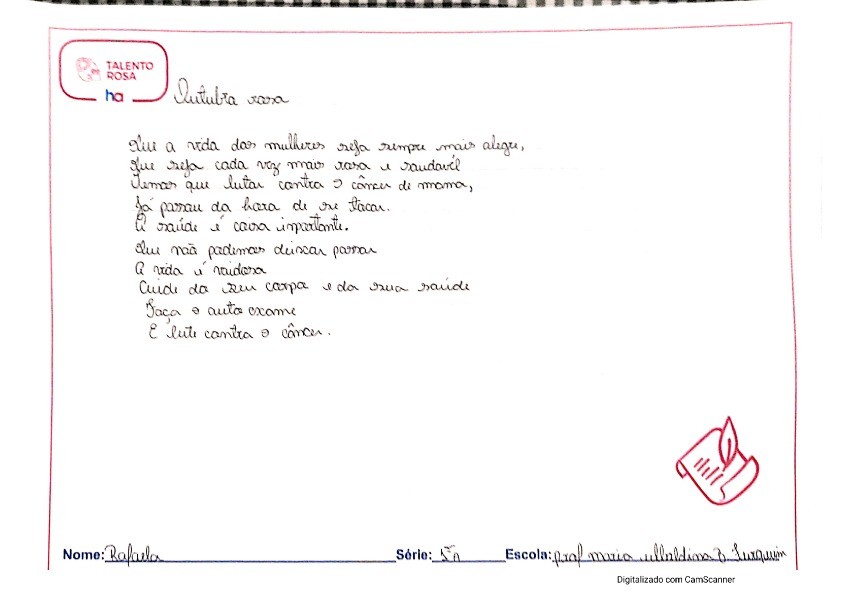 TALENTO
ROSA
ha
Outubro rosa
Que a vida das mulheres seja sempre mais alegre,
Que seja cada vez mais rosa e saudavél
Temos que lutar contra o câncer de mama,
Já passou da hora de se tocar.
A saúde é coisa importante.
Que não podemos deixar passar
A vida é vaidosa
Cuide do seu corpo e da sua saúde
Faça o auto exame
E lute contra o câncer.
Nome: Rafaela Série: 5ºA Escola: prof maria B. Turquim
Digitalizado com CamScanner